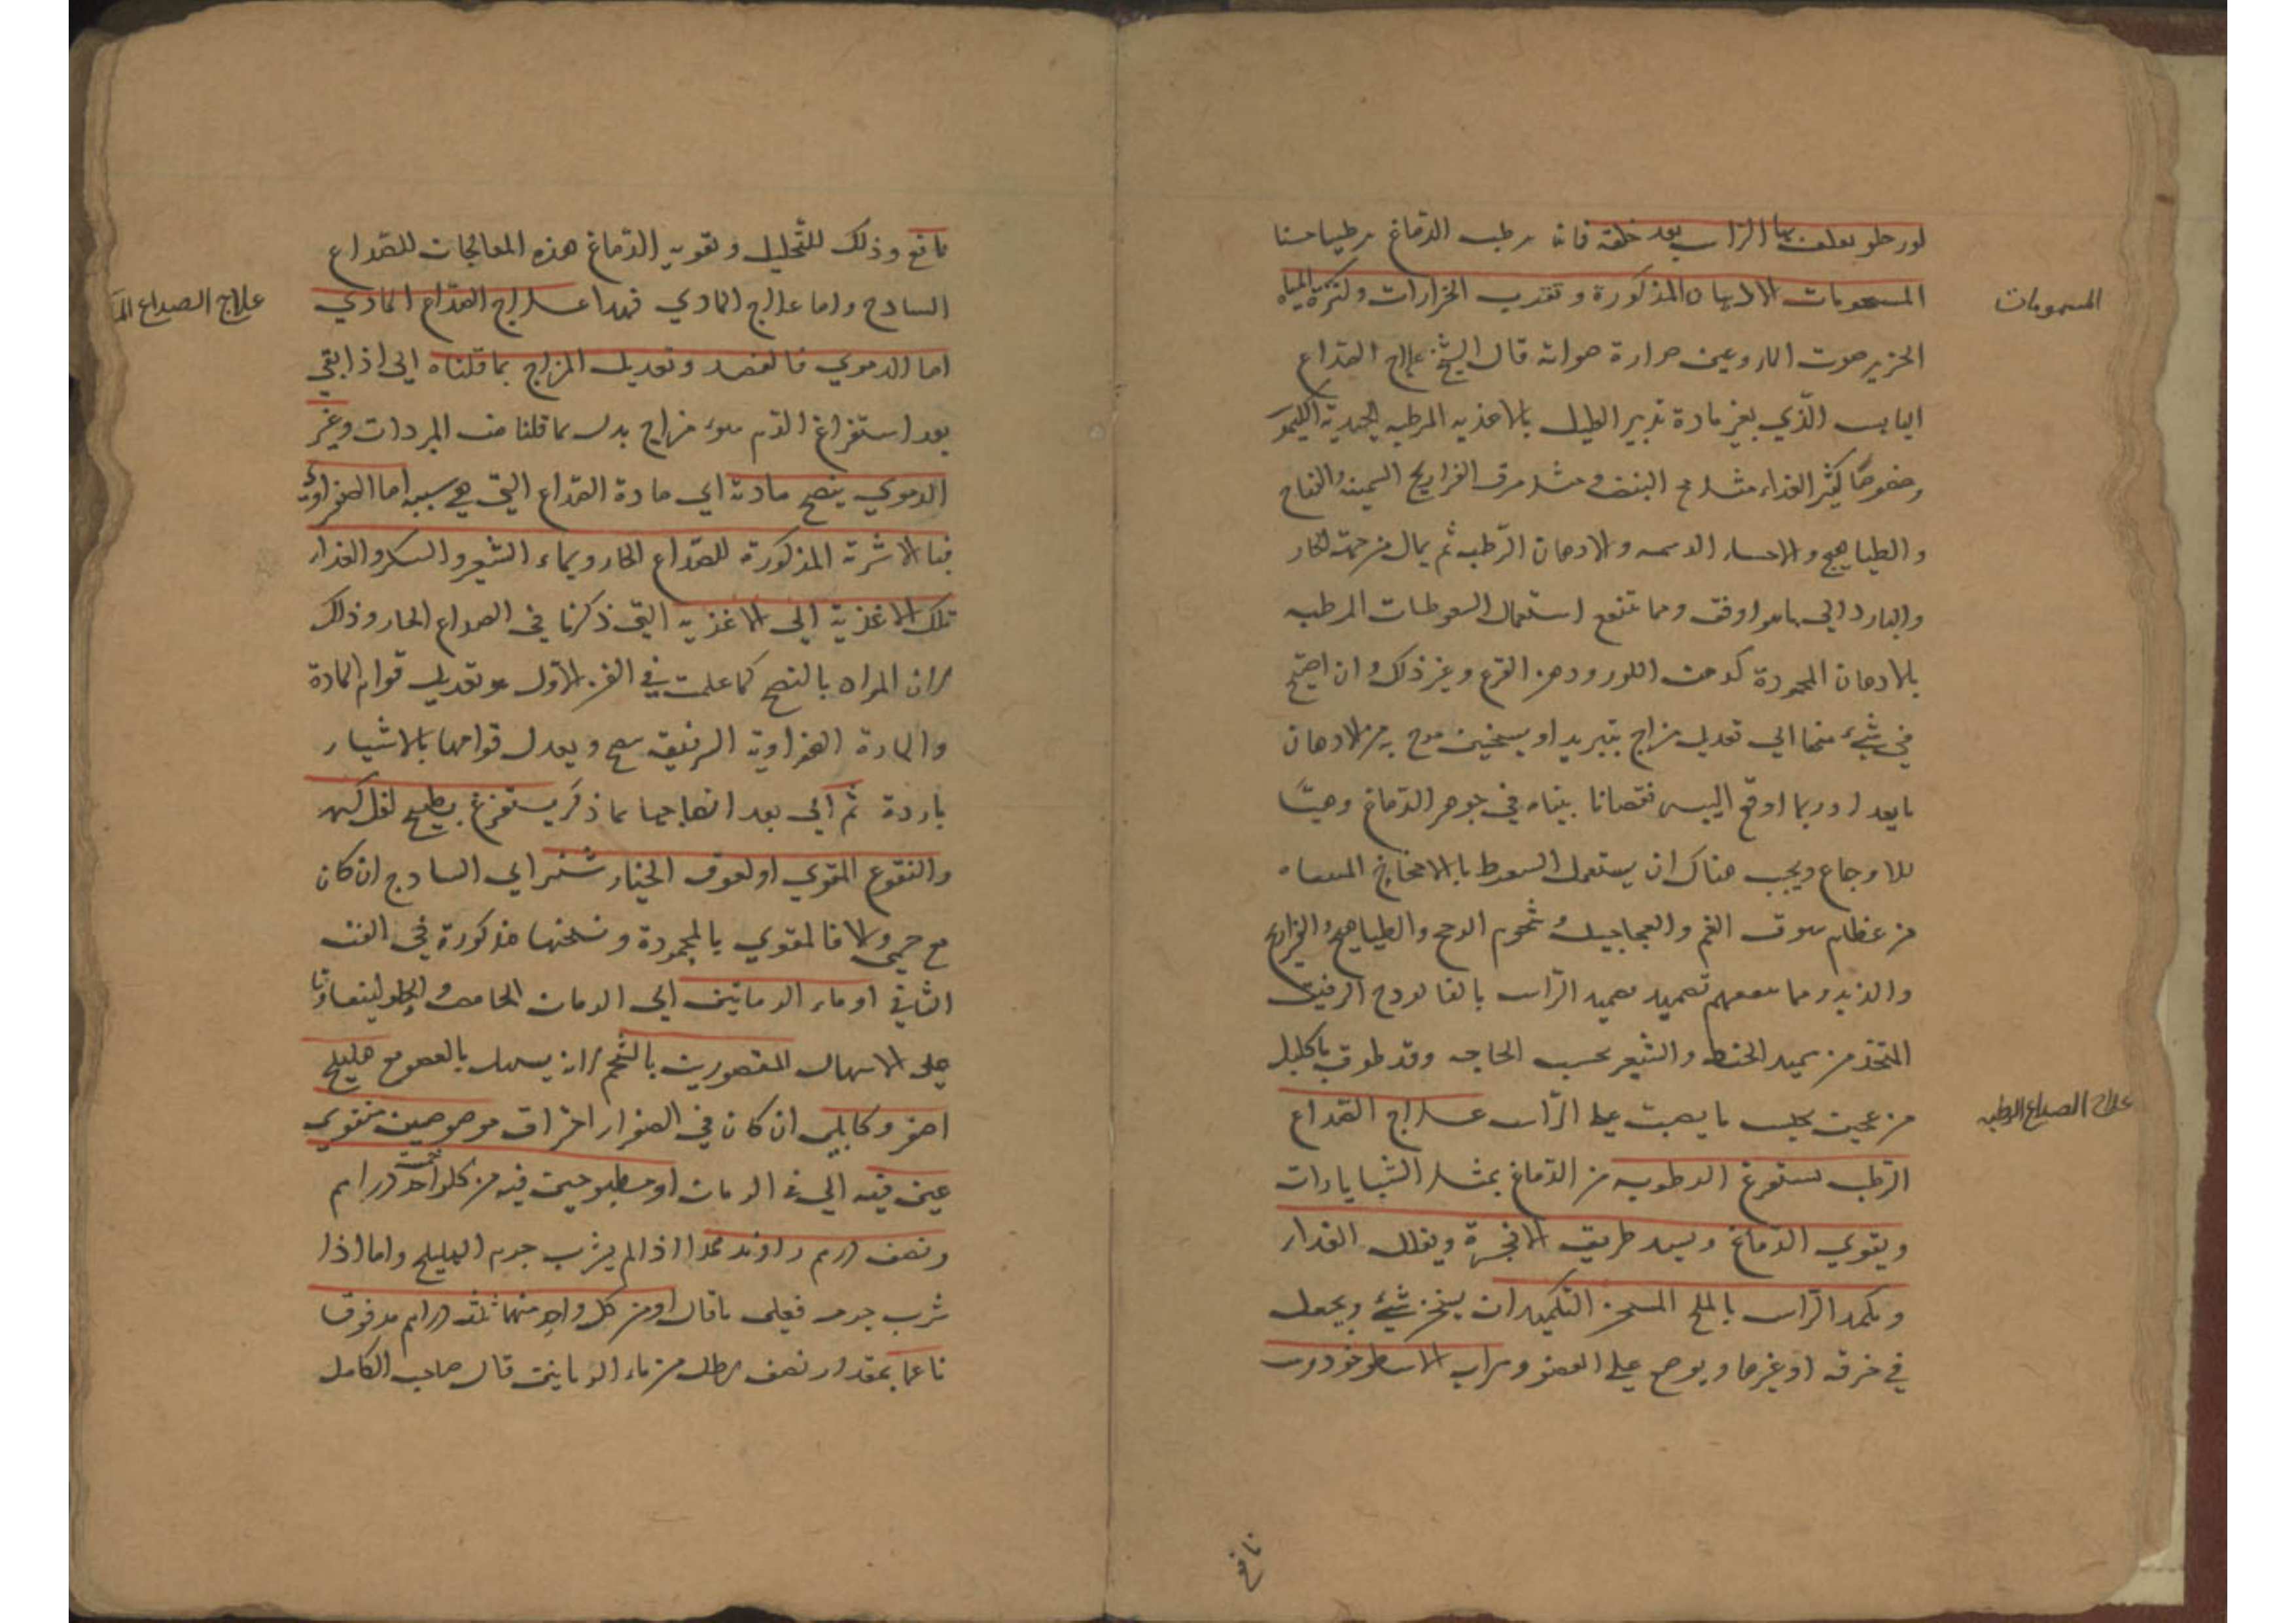 لور حلو بعلف بها الراس بعد حلقه فانه يرطب الدماغ ترطيبا حسنا
المشمومات الادهان المذكورة وتقريب الخرارات ولكثرة المياه
المشمومات
الخرير صوت الماء وعين حرارة هوائه قال الشيخ علاج الصداع
اليابس الذي بغير مادة تدبير العليل بالاغذيه المرطبه الجيدة الكيموس
وخصوصا كثير الغذاء مثل مح البيض ومثل مرق الفراريج السمينه والقباج
والطياهيج والاحساء الدسمه والادهان الرطبه ثم يمال من جهة الحار
والبارد الى ما هو اوفق ومما تنفع استعمال السعوطات المرطبه
بالادهان المحمودة كدهن اللوز ودهن القرع وغير ذلك وان احتيج
في شيء منها الى تعديل مزاج بتبريد او تسخين مزج به من الادهان
ما يعدل وربما اوقع اليبس نقصانا بيناه في جوهر الدماغ وهيئا
للاوجاع ويجب هناك ان يستعمل السعوط بالامخاخ المنقاه
من عظام سوق الغنم والعجاجيل وشحوم الدجج والطياهيج والفراريج
والزبد ومما ينفعهم تضميد تضميد الراس بالفالودج الرقيق
المتخذ من سميد الحنطه والشعير بحسب الحاجه وقد طوق باكليل
من عجين يحبس ما يصب على الراس علاج الصداع
علاج الصداع الرطب
الرطب يستفرغ الرطوبه من الدماغ بمثل الشيارات
ويقوي الدماغ ويسد طريق الابخرة ويقلل الغذاء
ويكمد الراس بالملح المسخن التكميد ان يسخن شيء ويجعل
في خرقه او غيرها ويوضع على العضو وشراب الاسطوخودوس
نافع
نافع وذلك للتحليل وتقويه الدماغ هذه المعالجات للصداع
السادج واما علاج المادي فهذا علاج الصداع المادي
علاج الصداع الما
اما الدموي فالفصد وتعديل المزاج بما قلناه اي اذا بقي
بعد استفراغ الدم سوء مزاج بدل بما قلنا من المبردات وغير
الدموي ينضج مادته اي مادة الصداع التي هي سببه اما الصفراوي
فبالاشربة المذكورة للصداع الحار وبماء الشعير والسكر والغذاء
تلك الاغذية اي الاغذيه التي ذكرنا في الصداع الحار وذلك
لان المراد بالنضج كما علمت في الفن الاول هو تعديل قوام المادة
والمادة الصفراوية الرقيقه ويعدل قوامها بالاشياء
باردة ثم اي بعد انضاجها بما ذكر يستفرغ بطبيخ
والنقوع المقوي او لعوق الخيار شنبر اي السادج ان كان
مع حمى والا فالمقوي بالمحمودة ونسختها مذكورة في الفن
الثاني او ماء الرمانين اي الرمان الحامض والحلو ليتعاونا
على الاسهال المعصورين بالشحم لانه يسهل بالعصر مع هليلج
اصفر وكابلي ان كان في الصفراء احتراق مرضوضين منقوعي
عين فيه اي في الرمان او مطبوخين فيه من كل واحد درهم
ونصف درهم راوند هذا اذا لم يشرب جرم الهليلج واما اذا
شرب جرمه فعلى ما قال او من كل واحد منهما ثلثه دراهم مدقوقا
ناعما بمقدار نصف رطل من ماء الرمانين قال صاحب الكامل